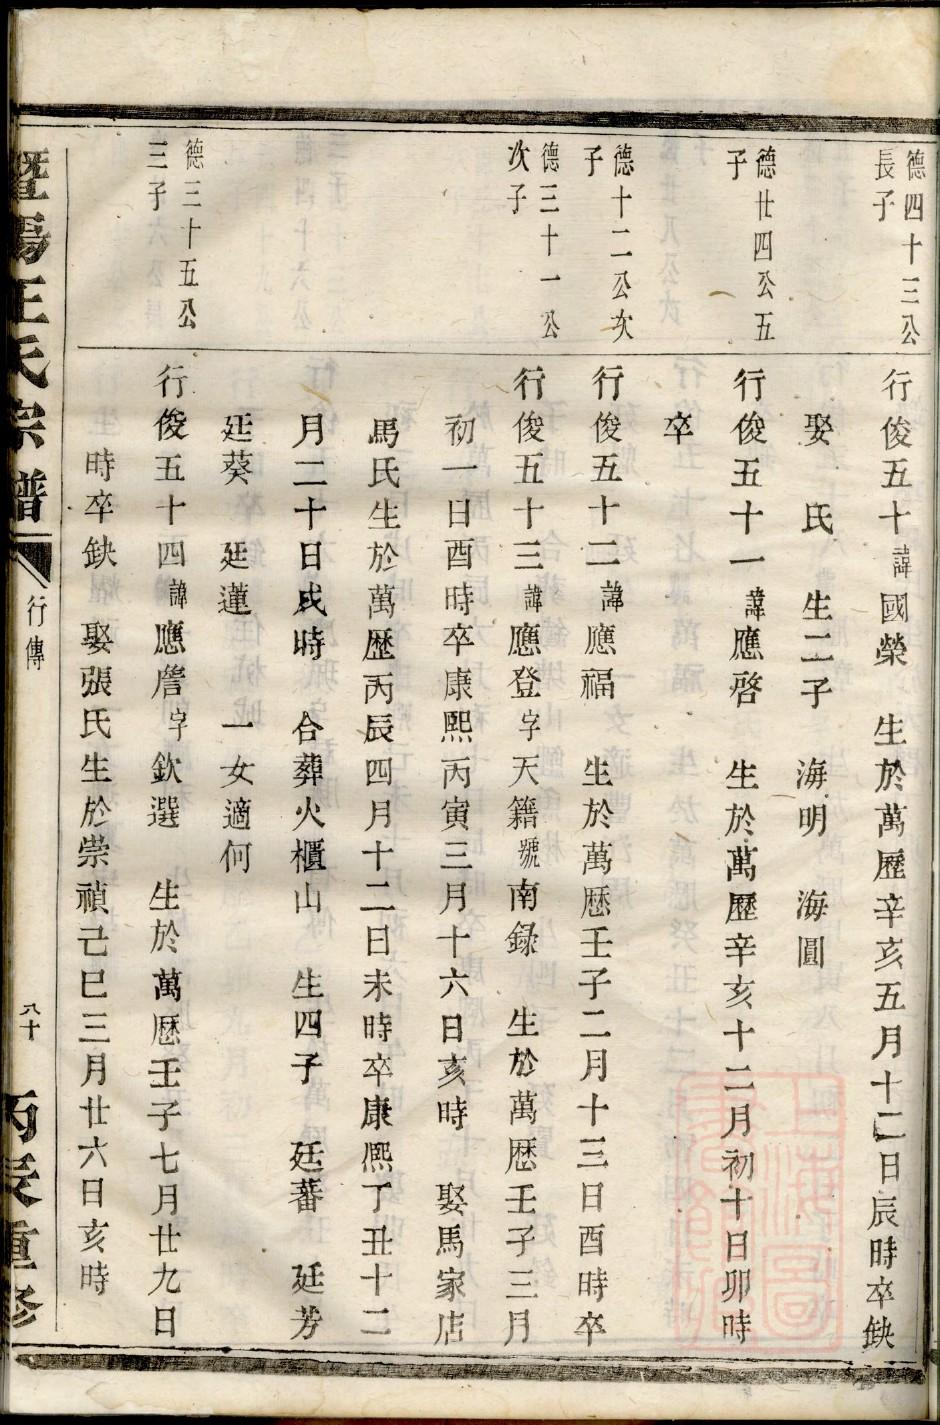 德四十三公
長子
行俊五十諱國榮　生於萬歷辛亥五月十二日辰時卒缺
娶　氏　生二子　海明　海圓
德廿四公五
子
行俊五十一諱應啓　生於萬歷辛亥十二月初十日卯時
卒
德十二公次
子
行俊五十二諱應福　生於萬歷壬子二月十三日酉時卒
德三十一公
次子
行俊五十三諱應登字天籍號南録　生於萬歷壬子三月
初一日酉時卒康熙丙寅三月十六日亥時　娶馬家店
馬氏生於萬歷丙辰四月十二日未時卒康熙丁丑十二
月二十日戌時　合葬火櫃山　生四子　廷蕃　廷芳
廷葵　廷蓮　一女適何
德三十五公
三子
行俊五十四諱應詹字欽選　生於萬歷壬子七月廿九日
時卒缺　娶張氏生於崇禎己巳三月廿六日亥時
暨陽王氏宗譜
行傳
八十
丙辰重修